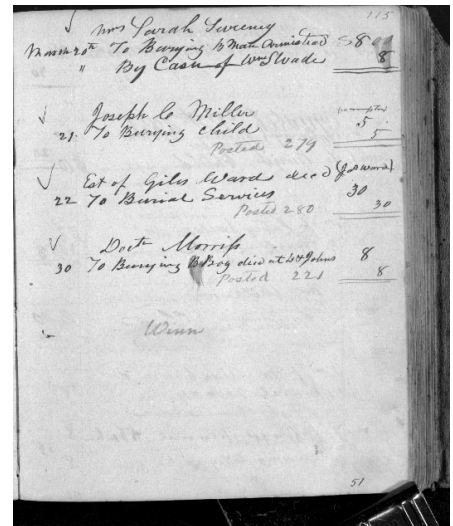 115
Mrs Sarah Sweeney
March 20th To Burying B Man Armistead $8 00
" By Cash of Wm Wade 8
Joseph C Miller
21 To Burying Child 5
5
Posted 279
Est of Giles Ward decd (Jas Ward)
22 To Burial Services 30
30
Posted 280
Doctr Morriss
30 To Burying B Boy died at St Johns 8
8
Posted 221
Winn
51